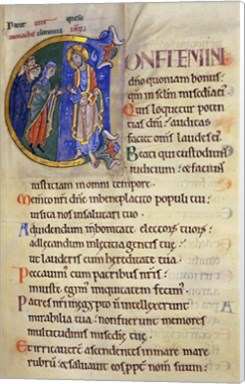 CONFITEMINI
dño quoniam bonus:
qm̄ in sclm̄ misedia ei'
Quis loquetur poten
tias dñi: auditas
faciet om̄s laudes ei'
Beati qui custodiunt
iudicium: & faciunt
iusticiam in omni tempore.
Memento nr̄i dñe inbeneplacito populi tui:
uisita nos insalutari tuo.
Ad uidendum inbonitate electoꝝ tuoꝝ:
ad letandum inleticia gentis tue:
ut lauderis cum hereditate tua.
Peccauim' cum patribus nr̄is:
iniuste egim' iniquitatem fecim'.
Patres nr̄i inegypto n̄ intellexerunt
mirabilia tua: non fuerunt memores
multitudinis misedie tue.
Et irritauert̄ ascendentes inmare mare
rubrū & saluauit eos ꝓpt̄ nom̄ suum: